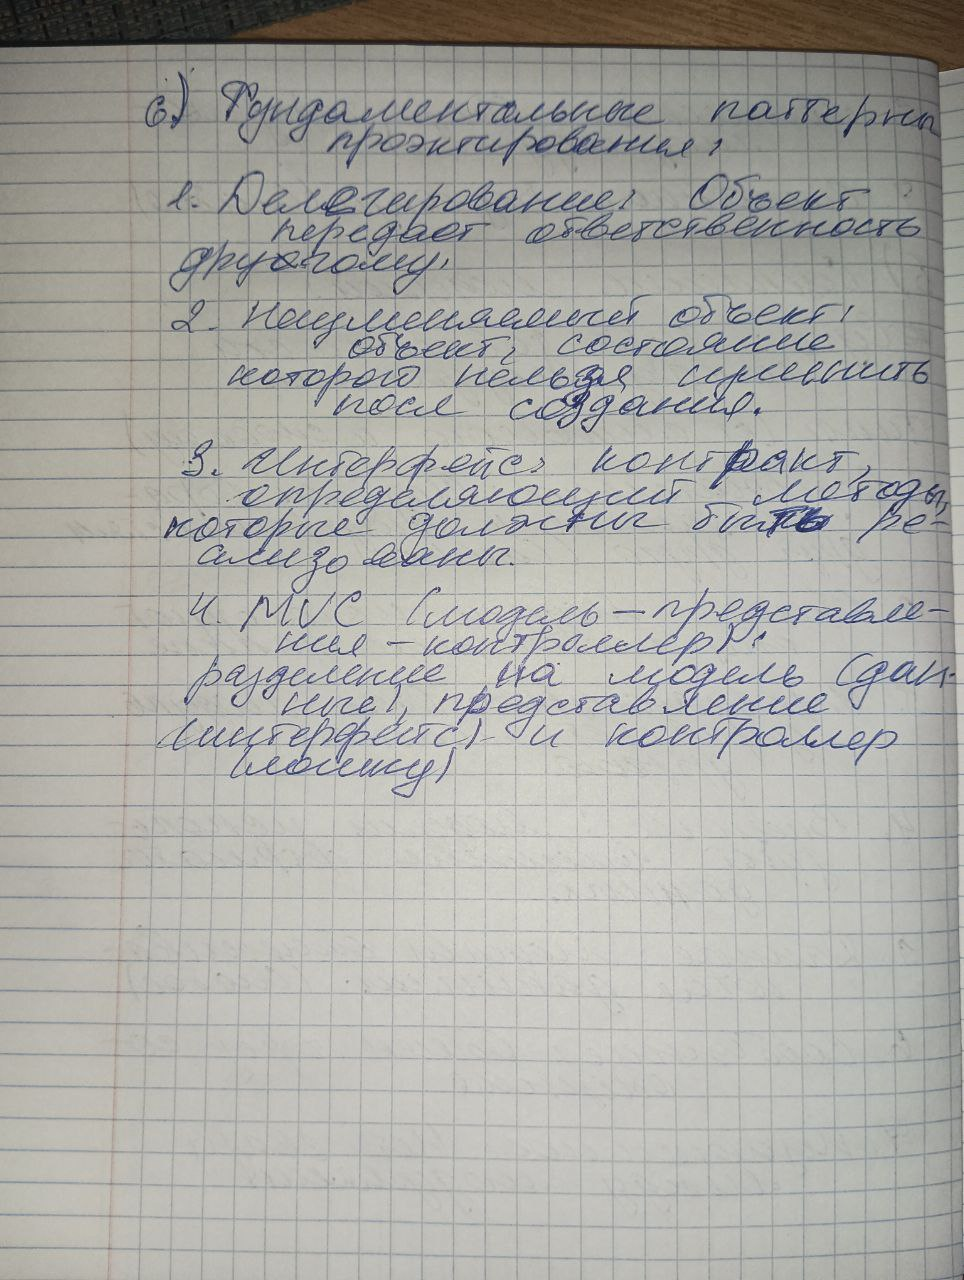 6) Фундаментальные паттерны
проэктирования:
1. Делегирование: Объект
передает ответственность
другому.
2. Неизменяемый объект:
объект, состояние
которого нельзя изменить
посл создания.
3. Интерфейс: контракт,
определяющий методы,
которые должны быть ре-
ализованы.
4. MVC (модель – представле-
ния – контроллер):
разделение на модель (дан-
ные), представление
(интерфейс) и контроллер
(логику)